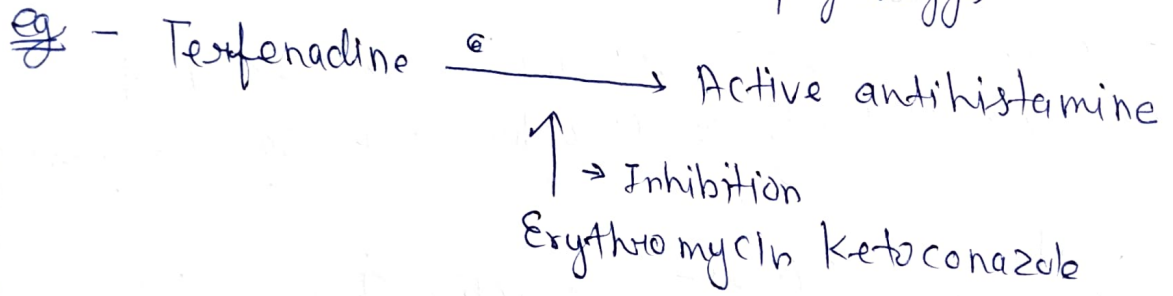 eg - Terfenadine → Active antihistamine
↑ → Inhibition
Erythromycin Ketoconazole